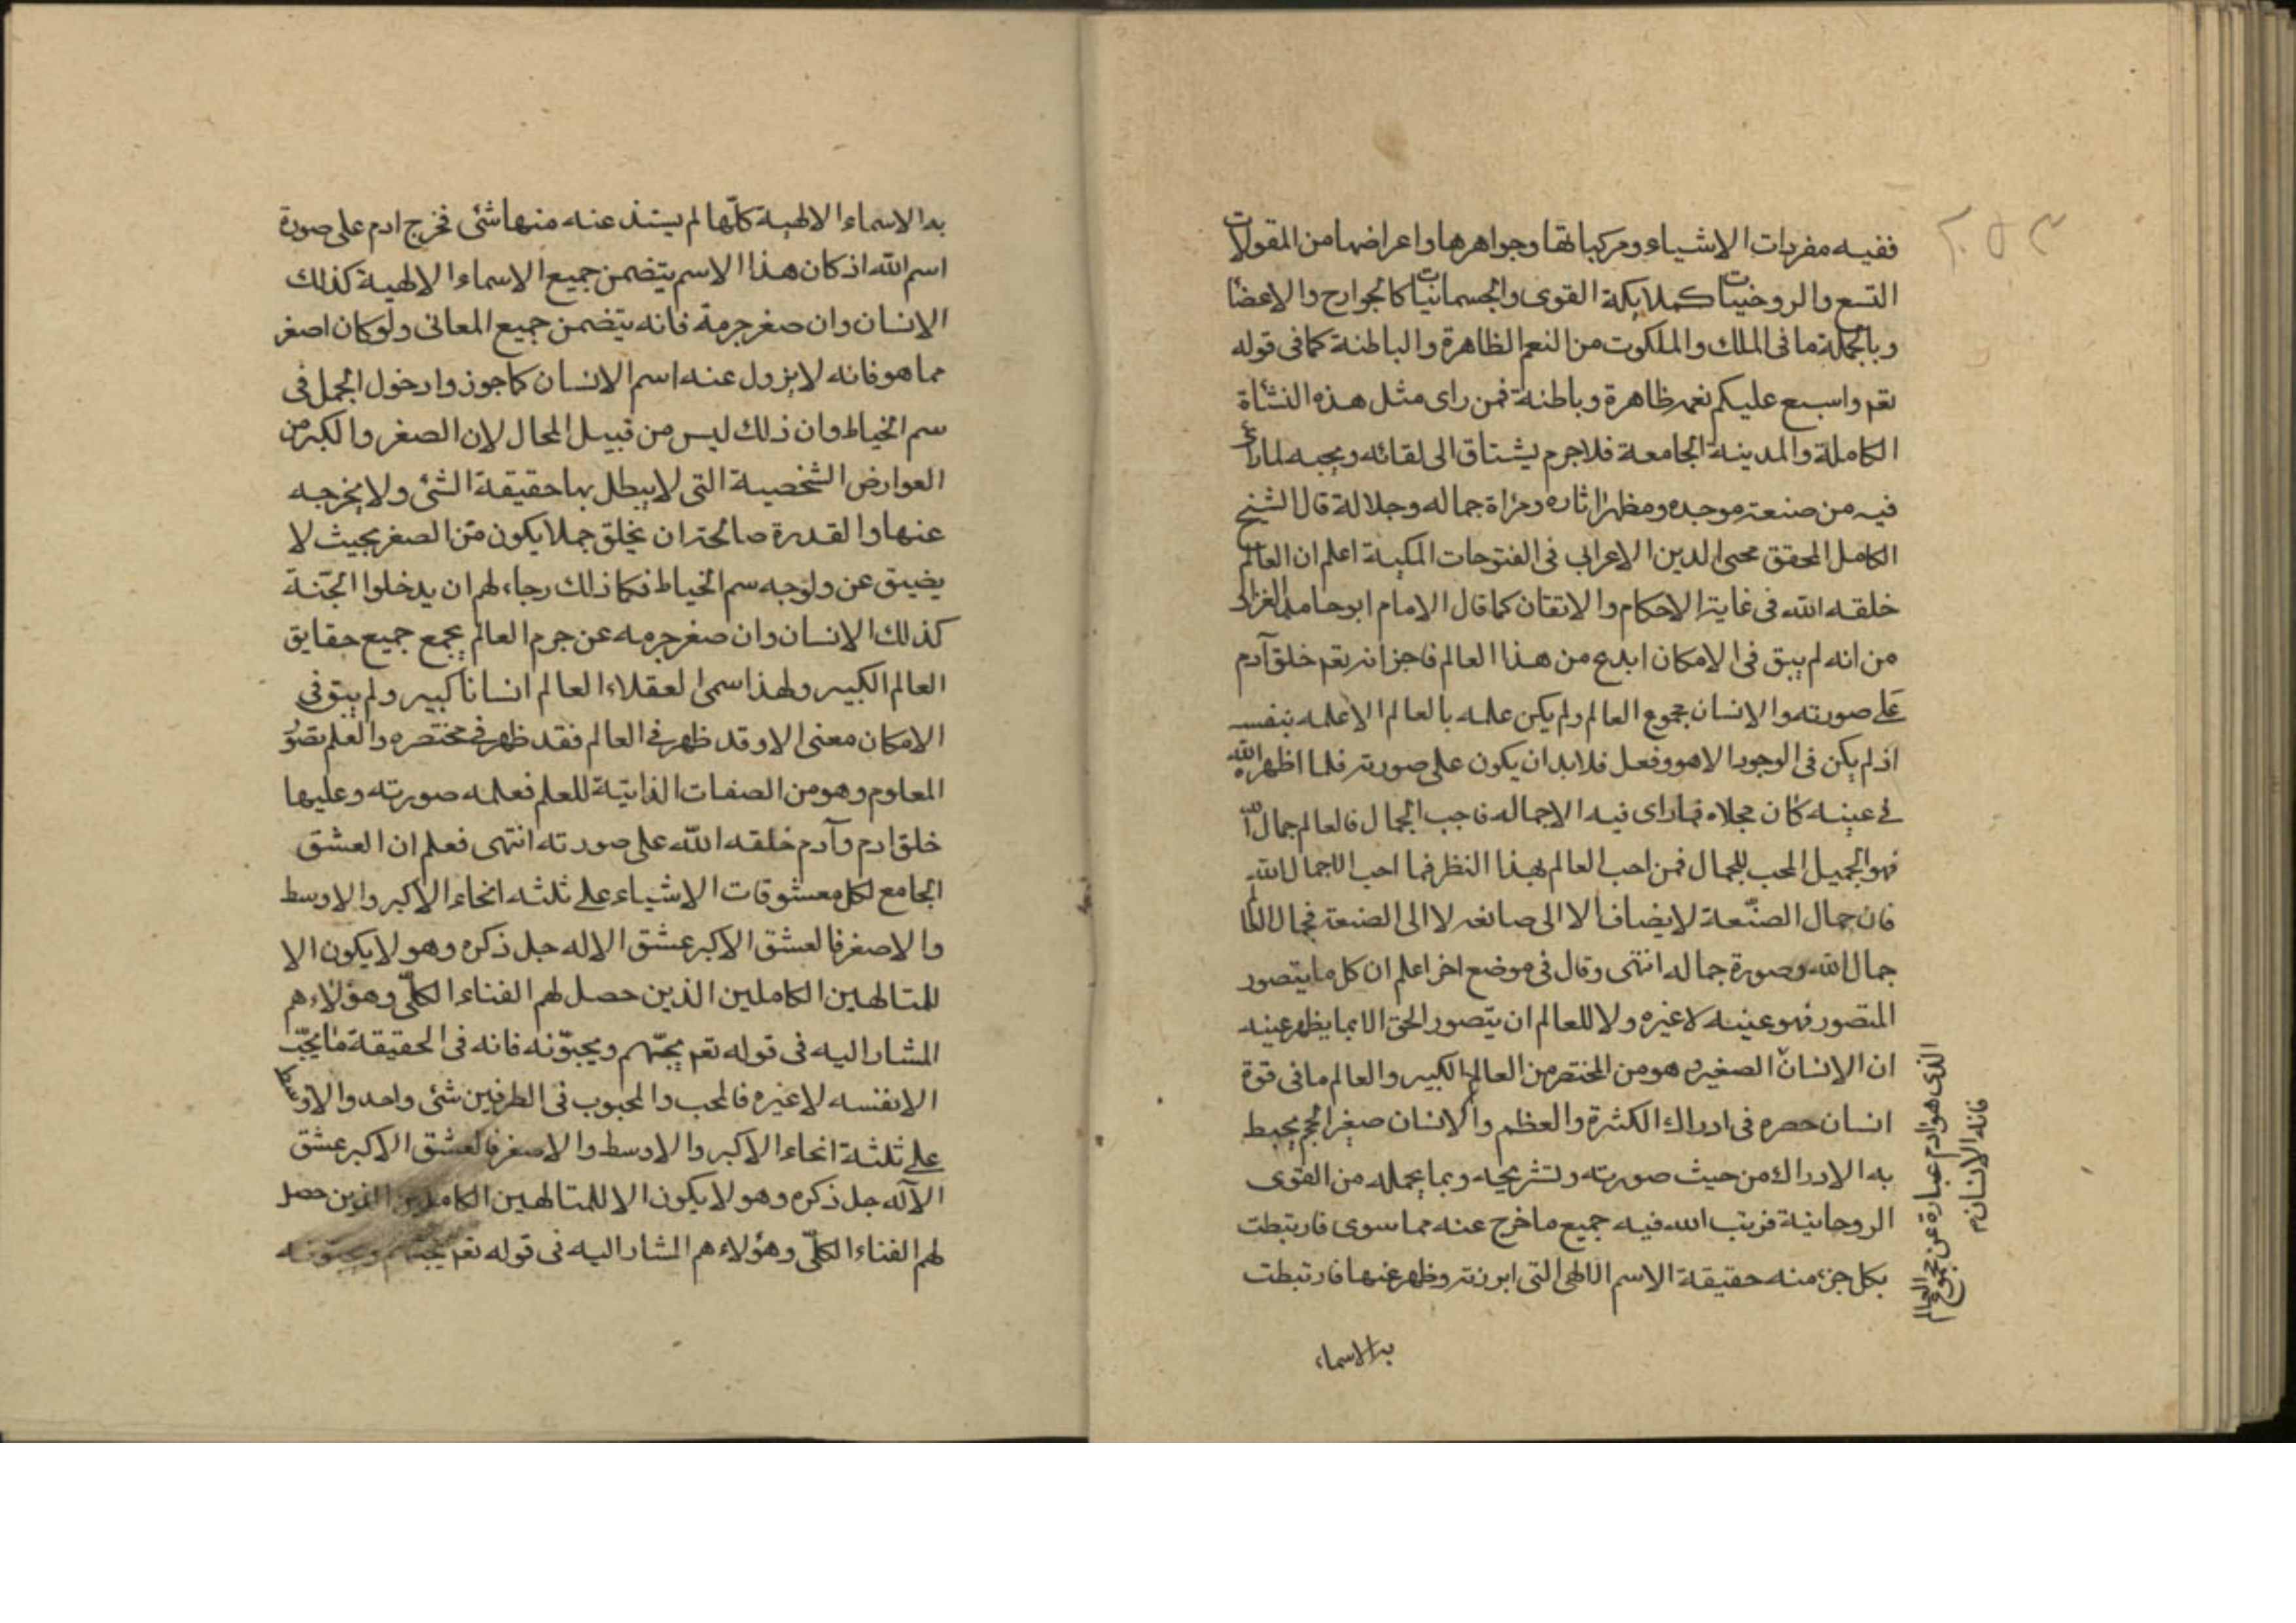 ٢٥٣
ففيه مفردات الاشياء ومركباتها وجواهرها واعراضها من المقولات
التسع والروخيات كملايكة القوى والجسمانيات كالجوارح والاعضا
وبالجملة ما فى الملك والملكوت من النعم الظاهرة والباطنة كما فى قوله
تعم واسبع عليكم نعمه ظاهرة وباطنة فمن راى مثل هذه النشأة
الكاملة والمدينة الجامعة فلا جرم يشتاق الى لقائه ويحبه لما راى
فيه من صنعة موجده ومظهر اثاره ومرآة جماله وجلاله قال الشيخ
الكامل المحقق محى الدين الاعرابى فى الفتوحات المكية اعلم ان العالم
خلقه الله فى غاية الاحكام والاتقان كما قال الامام ابو حامد الغزالى
من انه لم يبق فى الامكان ابدع من هذا العالم فاخبر انه تعم خلق آدم
على صورته والانسان مجموع العالم ولم يكن علمه بالعالم الا علمه بنفسه
اذ لم يكن فى الوجود الا هو وفعل فلا بد ان يكون على صورته فلما اظهره الله
فى عينه كان مجلاه فما راى فيه الا جماله فاحب الجمال فالعالم جمال الله
فهو الجميل المحب للجمال فمن احب العالم بهذا النظر فما احب الا جمال الله
فان جمال الصنعة لا يضاف الا الى صانعه لا الى الصنعة فجمال العالم
جمال الله وصورة جماله انتهى وقال فى موضع اخر اعلم ان كل ما يتصور
المتصور فهو عينه لا غيره ولا للعالم ان يتصور الحق الا بما يظهر عينه
ان الانسان الصغير وهو من المختصر من العالم الكبير والعالم ما فى قوة
انسان حصره فى ادراك الكثرة والعظم والانسان صغير الحجم يحيط
به الادراك من حيث صورته وتشريحه وبما يحمله من القوى
الروحانية فرتب الله فيه جميع ما خرج عنه مما سوى فارتبطت
بكل جزء منه حقيقة الاسم الالهى التى ابرزته وظهر عنها فارتبطت
الذى هو ادم عبارة عن مجموع العالم
فانه الانسان
به الاسماء
به الاسماء الالهية كلّها لم يشذ عنه منها شئ فخرج ادم على صورة
اسم الله اذ كان هذا الاسم يتضمن جميع الاسماء الالهية كذلك
الانسان وان صغر جرمه فانه يتضمن جميع المعانى ولو كان اصغر
مما هو فانه لا يزول عنه اسم الانسان كما جوزوا دخول الجمل فى
سم الخياط وان ذلك ليس من قبيل المحال لان الصغر والكبر من
العوارض الشخصية التى لا يبطل بها حقيقة الشئ ولا يخرجه
عنها والقدرة صالحة ان يخلق جملا يكون من الصغر بحيث لا
يضيق عن ولوجه سم الخياط فكما ذلك رجاء لهم ان يدخلوا الجنّة
كذلك الانسان وان صغر جرمه عن جرم العالم يجمع جميع حقايق
العالم الكبير ولهذا سمى العقلاء العالم انسانا كبير ولم يبق فى
الامكان معنى الا وقد ظهر فى العالم فقد ظهر فى مختصره والعلم تصوّر
المعلوم وهو من الصفات الذاتيّة للعلم فعلمه صورته وعليها
خلق ادم وآدم خلقه الله على صورته انتهى فعلم ان العشق
الجامع لكل معشوقات الاشياء على ثلثه انحاء الاكبر والاوسط
والاصغر فالعشق الاكبر عشق الاله جل ذكره وهو لا يكون الا
للمتالهين الكاملين الذين حصل لهم الفناء الكلّى وهؤلاء هم
المشار اليه فى قوله تعم يحبّهم ويحبّونه فانه فى الحقيقة ما يحبّ
الا نفسه لا غيره فالمحب والمحبوب فى الطرفين شئ واحد والاوسط
على ثلثة انحاء الاكبر والاوسط والاصغر فالعشق الاكبر عشق
الآله جل ذكره وهو لا يكون الا للمتالهين الكاملين الذين حصل
لهم الفناء الكلّى وهؤلاء هم المشار اليه فى قوله تعم يحبّهم ويحبّونه